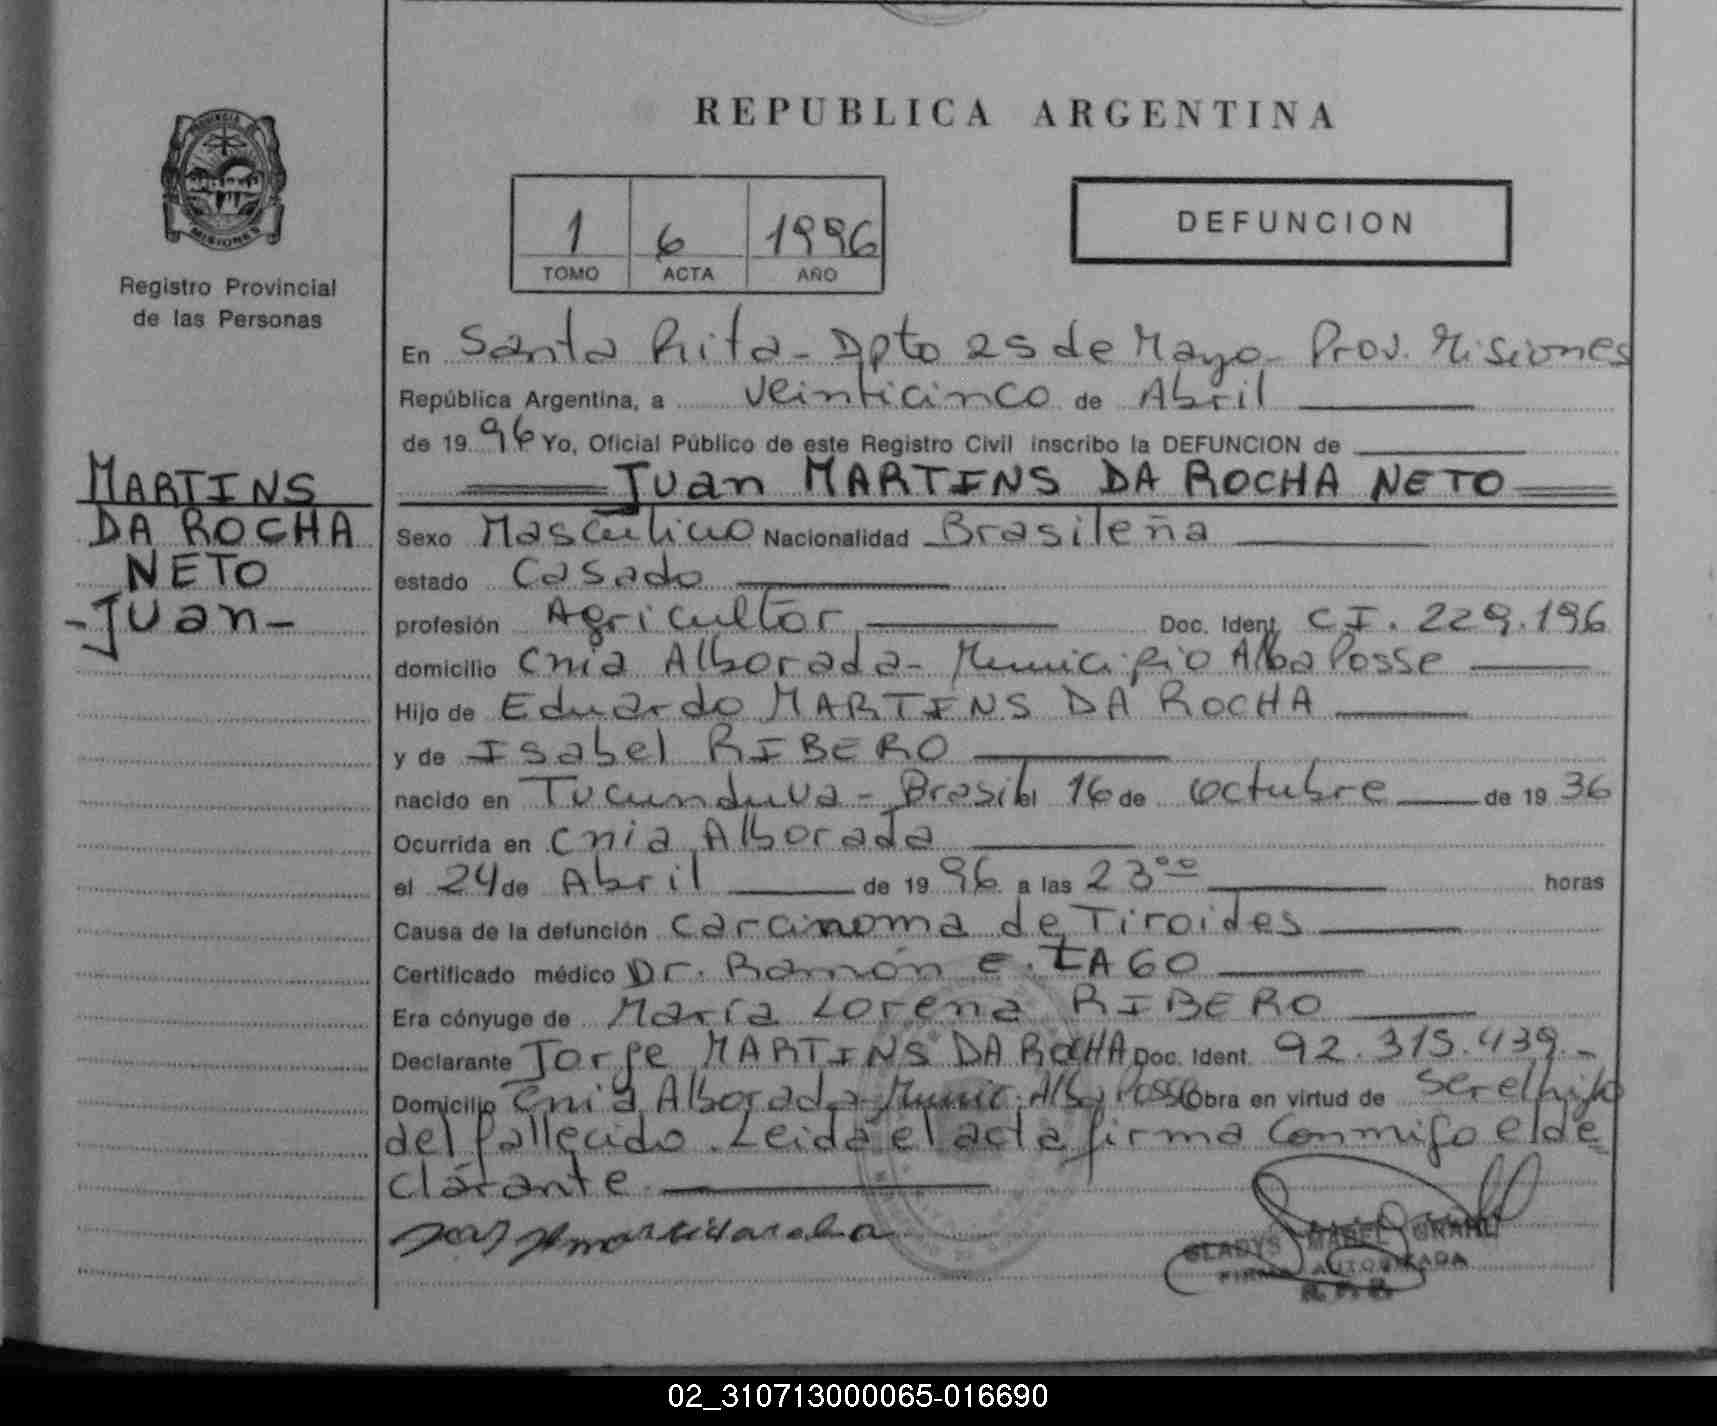 REPUBLICA ARGENTINA
PROVINCIA DE
MISIONES
Registro Provincial
de las Personas
1 6 1996
TOMO ACTA AÑO
DEFUNCION
En Santa Rita - Dpto 25 de Mayo - Prov. Misiones
República Argentina, a veinticinco de Abril
de 1996 Yo, Oficial Público de este Registro Civil inscribo la DEFUNCION de
Juan MARTINS DA ROCHA NETO
MARTINS
DA ROCHA
NETO
-Juan-
Sexo Masculino Nacionalidad Brasileña
estado Casado
profesión Agricultor Doc. Ident. CI. 229.196
domicilio Cnia Alborada - Municipio Alba Posse
Hijo de Eduardo MARTINS DA ROCHA
y de Isabel RIBERO
nacido en Tucunduva - Brasil el 16 de octubre de 1936
Ocurrida en Cnia Alborada
el 24 de Abril de 1996 a las 23°° horas
Causa de la defunción Carcinoma de Tiroides
Certificado médico Dr. Ramón E.
Era cónyuge de María Lorena RIBERO
Declarante Jorge MARTINS DA ROCHA Doc. Ident. 92.315.439.-
Domicilio Cnia Alborada - Munic. Alba Posse Obra en virtud de ser el hijo
del fallecido. Leida el acta firma conmigo el de
clarante
GLADYS MABEL
FIRMA AUTORIZADA
02_310713000065-016690